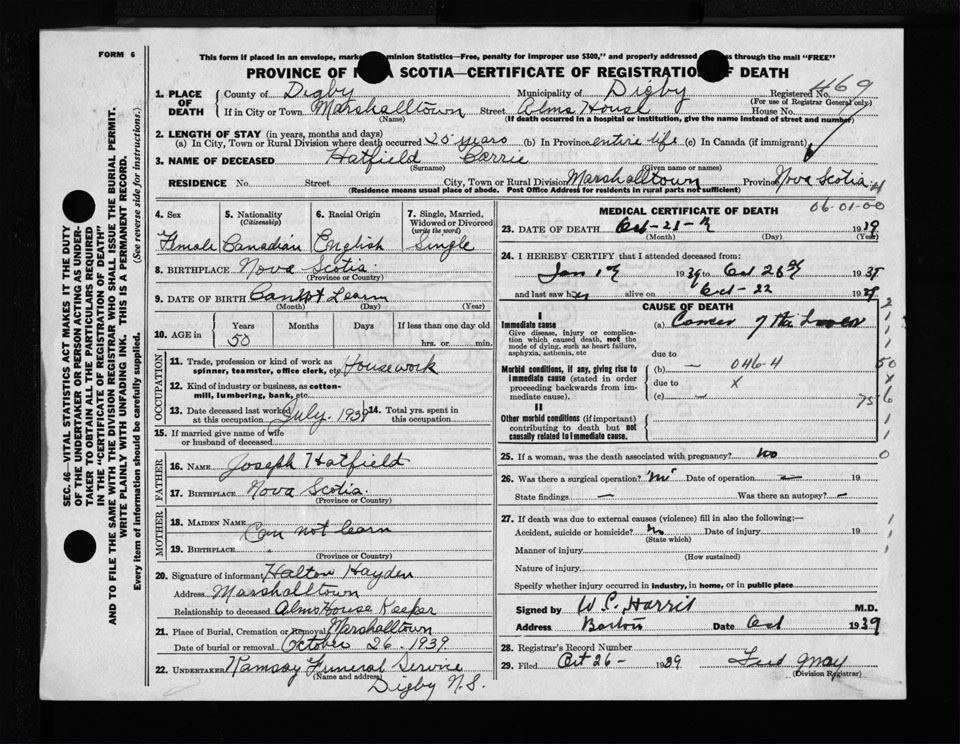 FORM 6
This form if placed in an envelope, marke minion Statistics—Free, penalty for improper use $300," and properly addressed s through the mail "FREE"
PROVINCE OF N A SCOTIA—CERTIFICATE OF REGISTRATION F DEATH
469
1. PLACE OF DEATH
County of Digby Municipality of Digby Registered No.
(For use of Registrar General only.)
If in City or Town Marshalltown Street Alms House House No.
(Name) (If death occurred in a hospital or institution, give the name instead of street and number)
2. LENGTH OF STAY (in years, months and days)
(a) In City, Town or Rural Division where death occurred 25 years (b) In Province entire life (c) In Canada (if immigrant)
3. NAME OF DECEASED Hatfield Carrie
(Surname) (Given name or names)
RESIDENCE No. Street City, Town or Rural Division Marshalltown Province Nova Scotia
(Residence means usual place of abode. Post Office Address for residents in rural parts not sufficient)
06-01-00
4. Sex Female
5. Nationality (Citizenship) Canadian
6. Racial Origin English
7. Single, Married, Widowed or Divorced (write the word) Single
8. BIRTHPLACE Nova Scotia
(Province or Country)
9. DATE OF BIRTH Cannot Learn
(Month) (Day) (Year)
10. AGE in Years Months Days If less than one day old
50 hrs. or min.
OCCUPATION
11. Trade, profession or kind of work as spinner, teamster, office clerk, etc. Housework
12. Kind of industry or business, as cotton-mill, lumbering, bank, etc.
13. Date deceased last worked at this occupation July. 1939
14. Total yrs. spent in this occupation
15. If married give name of wife or husband of deceased
FATHER
16. NAME Joseph Hatfield
17. BIRTHPLACE Nova Scotia.
(Province or Country)
MOTHER
18. MAIDEN NAME Can not learn
19. BIRTHPLACE "
(Province or Country)
20. Signature of informant Halton Hayden
Address Marshalltown
Relationship to deceased Alms House Keeper
21. Place of Burial, Cremation or Removal Marshalltown
Date of burial or removal October 26. 1939.
22. UNDERTAKER Ramsay Funeral Service
(Name and address)
Digby N.S.
MEDICAL CERTIFICATE OF DEATH
23. DATE OF DEATH Oct-25- 1939
(Month) (Day) (Year)
24. I HEREBY CERTIFY that I attended deceased from:
Jan 1st 1939 to Oct 1939
and last saw her alive on Oct-22 1939
CAUSE OF DEATH
I
Immediate cause
Give disease, injury or complication which caused death, not the mode of dying, such as heart failure, asphyxia, asthenia, etc
(a) Cancer of the Liver
due to
Morbid conditions, if any, giving rise to immediate cause (stated in order proceeding backwards from immediate cause).
(b) — 046-4
due to x
(c) —
II
Other morbid conditions (if important) contributing to death but not causally related to immediate cause.
25. If a woman, was the death associated with pregnancy? No
26. Was there a surgical operation? No Date of operation —
State findings — Was there an autopsy? —
27. If death was due to external causes (violence) fill in also the following:—
Accident, suicide or homicide? No Date of injury 19
(State which)
Manner of injury
(How sustained)
Nature of injury
Specify whether injury occurred in industry, in home, or in public place
Signed by W. P. Harris M.D.
Address Barton Date Oct 1939
28. Registrar's Record Number
29. Filed Oct 26- 1939 Fred May
(Division Registrar)
SEC. 46—VITAL STATISTICS ACT MAKES IT THE DUTY
OF THE UNDERTAKER OR PERSON ACTING AS UNDER-
TAKER TO OBTAIN ALL THE PARTICULARS REQUIRED
IN THE "CERTIFICATE OF REGISTRATION OF DEATH"
AND TO FILE THE SAME WITH THE DIVISION REGISTRAR WHO SHALL ISSUE THE BURIAL PERMIT.
WRITE PLAINLY WITH UNFADING INK. THIS IS A PERMANENT RECORD.
Every item of information should be carefully supplied. (See reverse side for instructions.)